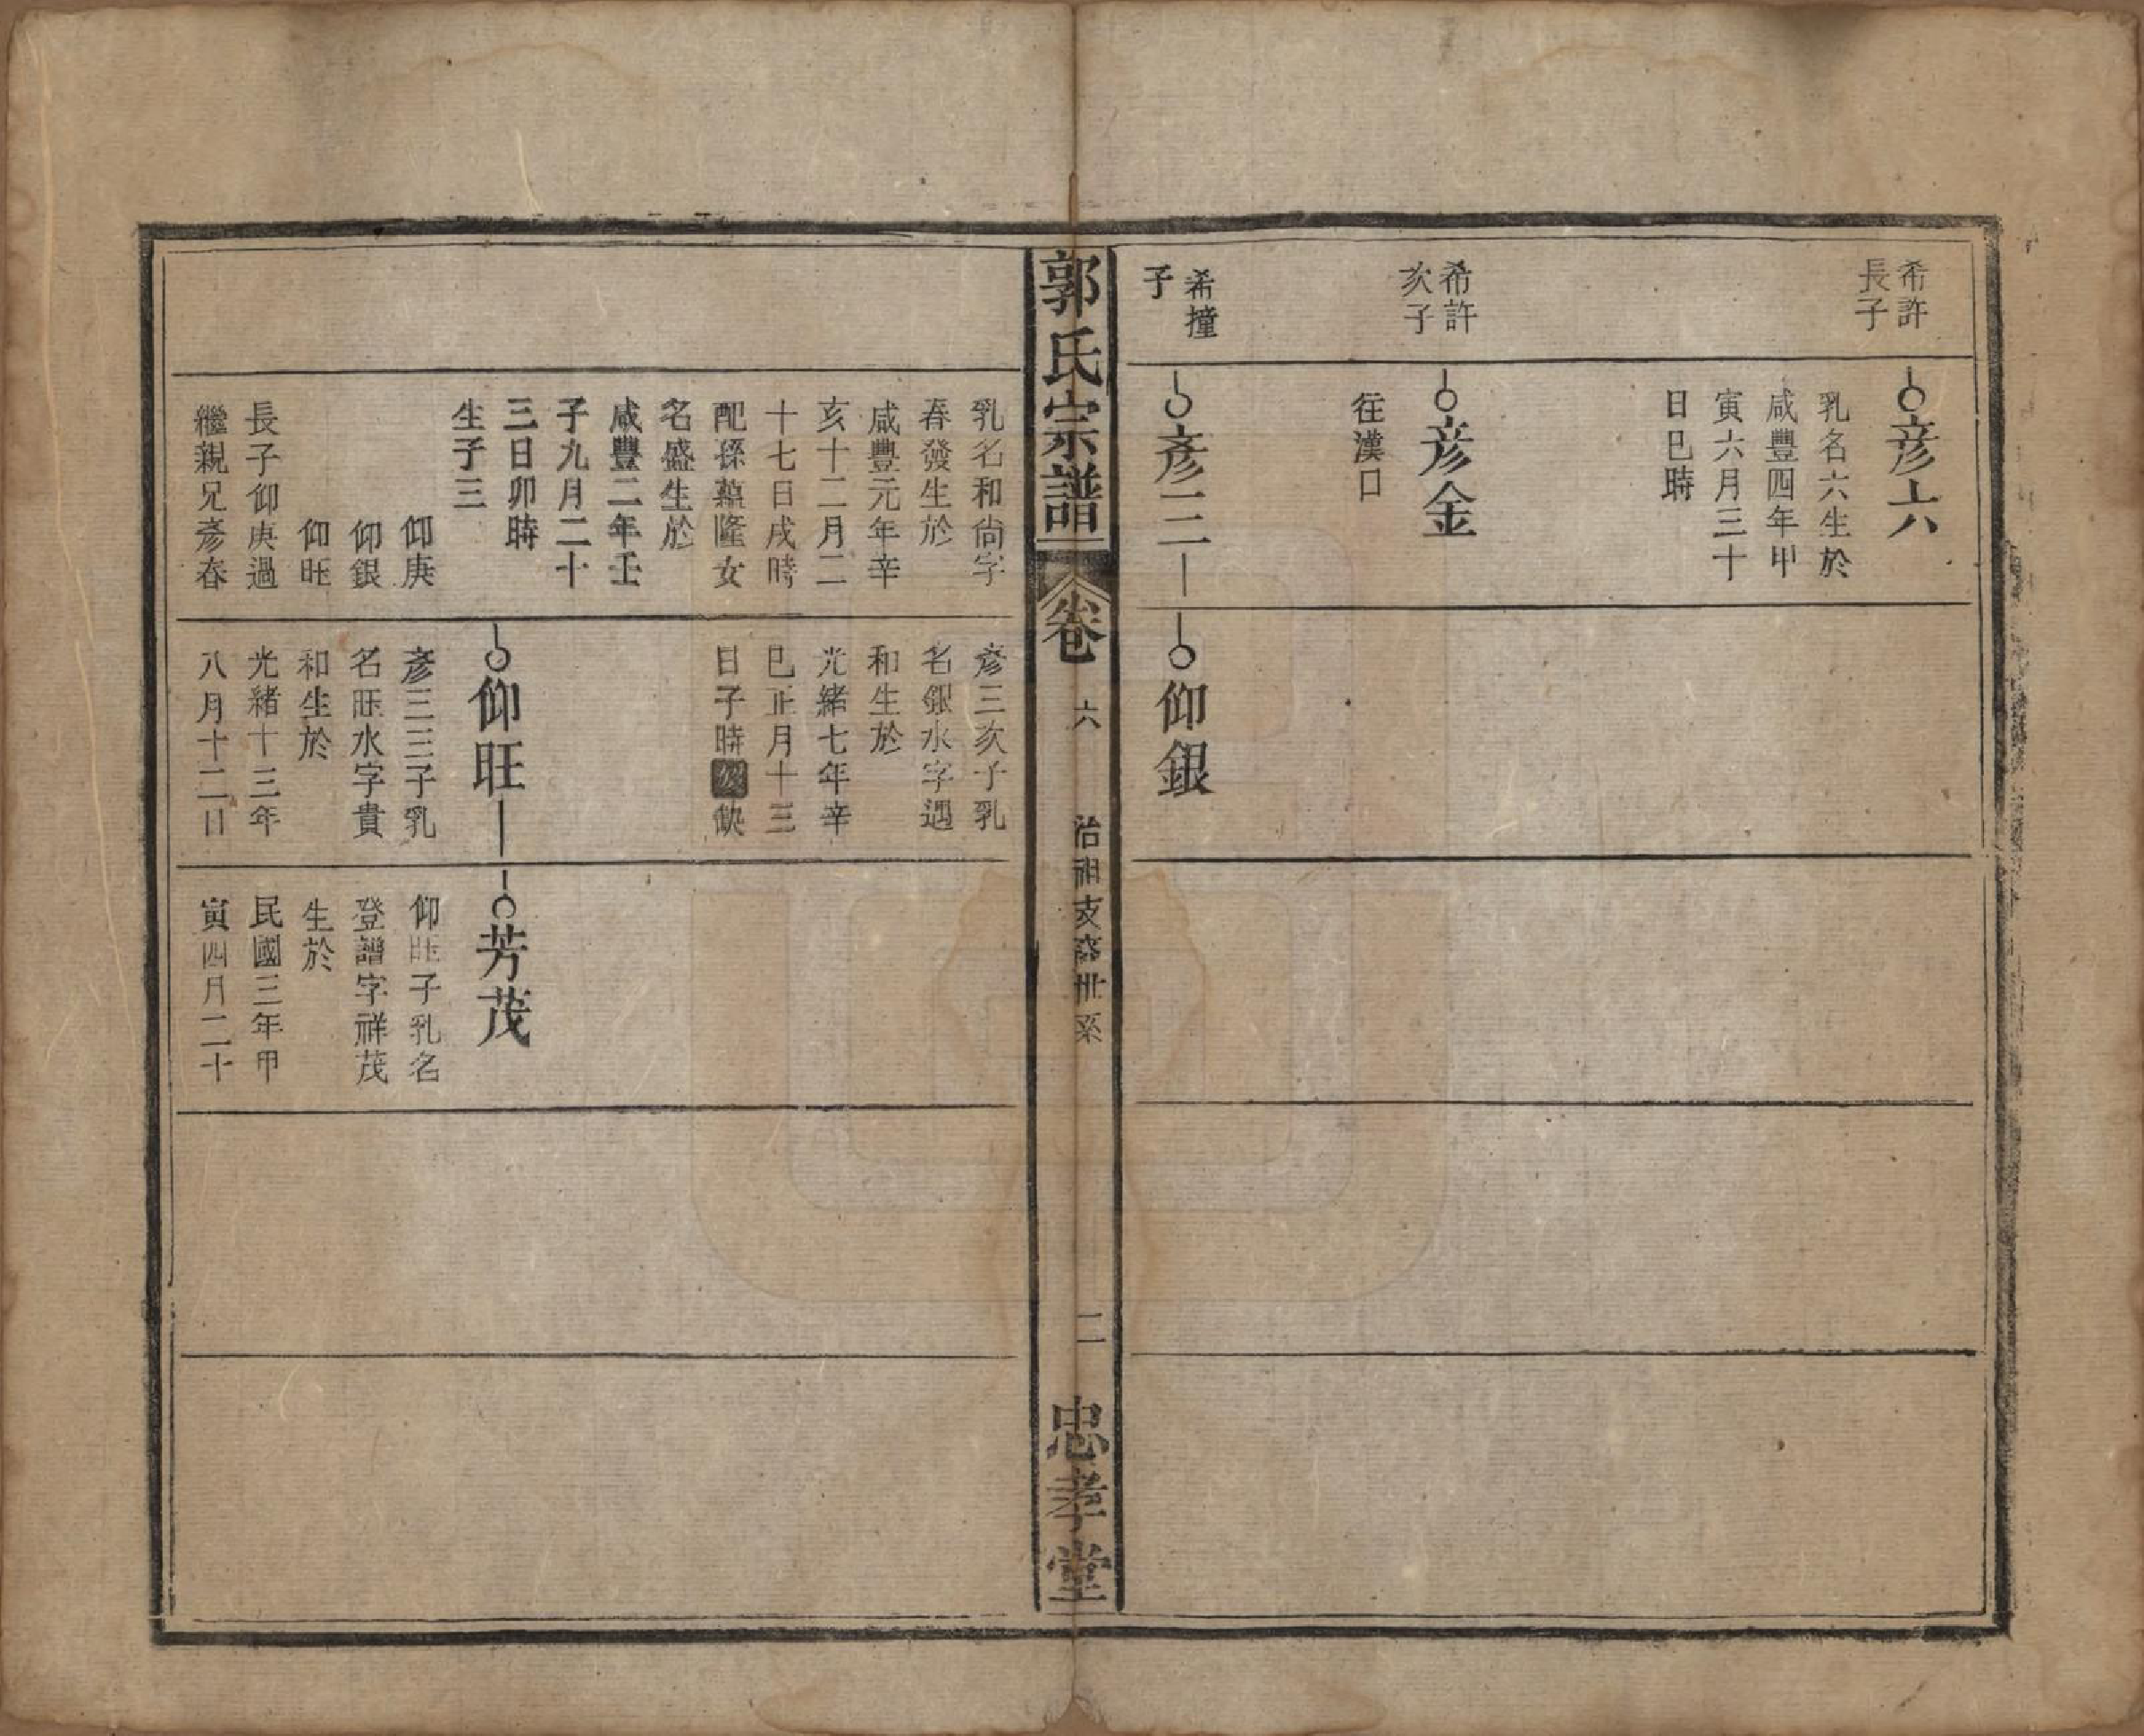 希許
長子
彥六
乳名六生於
咸豐四年甲
寅六月三十
日巳時
希許
次子
彥金
往漢口
希撞
子
彥三
仰銀
郭氏宗譜
卷
六
治祖支
世系
二
忠孝堂
乳名和尙字
春發生於
咸豐元年辛
亥十二月二
十七日戌時
配孫
隆女
名盛生於
咸豐二年壬
子九月二十
三日卯時
生子三
仰庚
仰銀
仰旺
長子仰庚過
繼親兄彥春
彥三次子乳
名銀水字遇
和生於
光緒七年辛
巳正月十三
日子時
缺
仰旺
彥三三子乳
名旺水字貴
和生於
光緒十三年
八月十二日
芳茂
仰旺子乳名
登譜字祥茂
生於
民國三年甲
寅四月二十